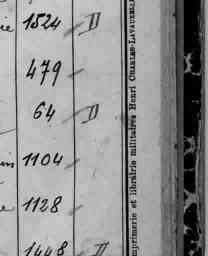 1524 D
479
64 D
1104
1128
1448 D
Imprimerie et librairie militaires Henri CHARLES-LAVAUZELLE